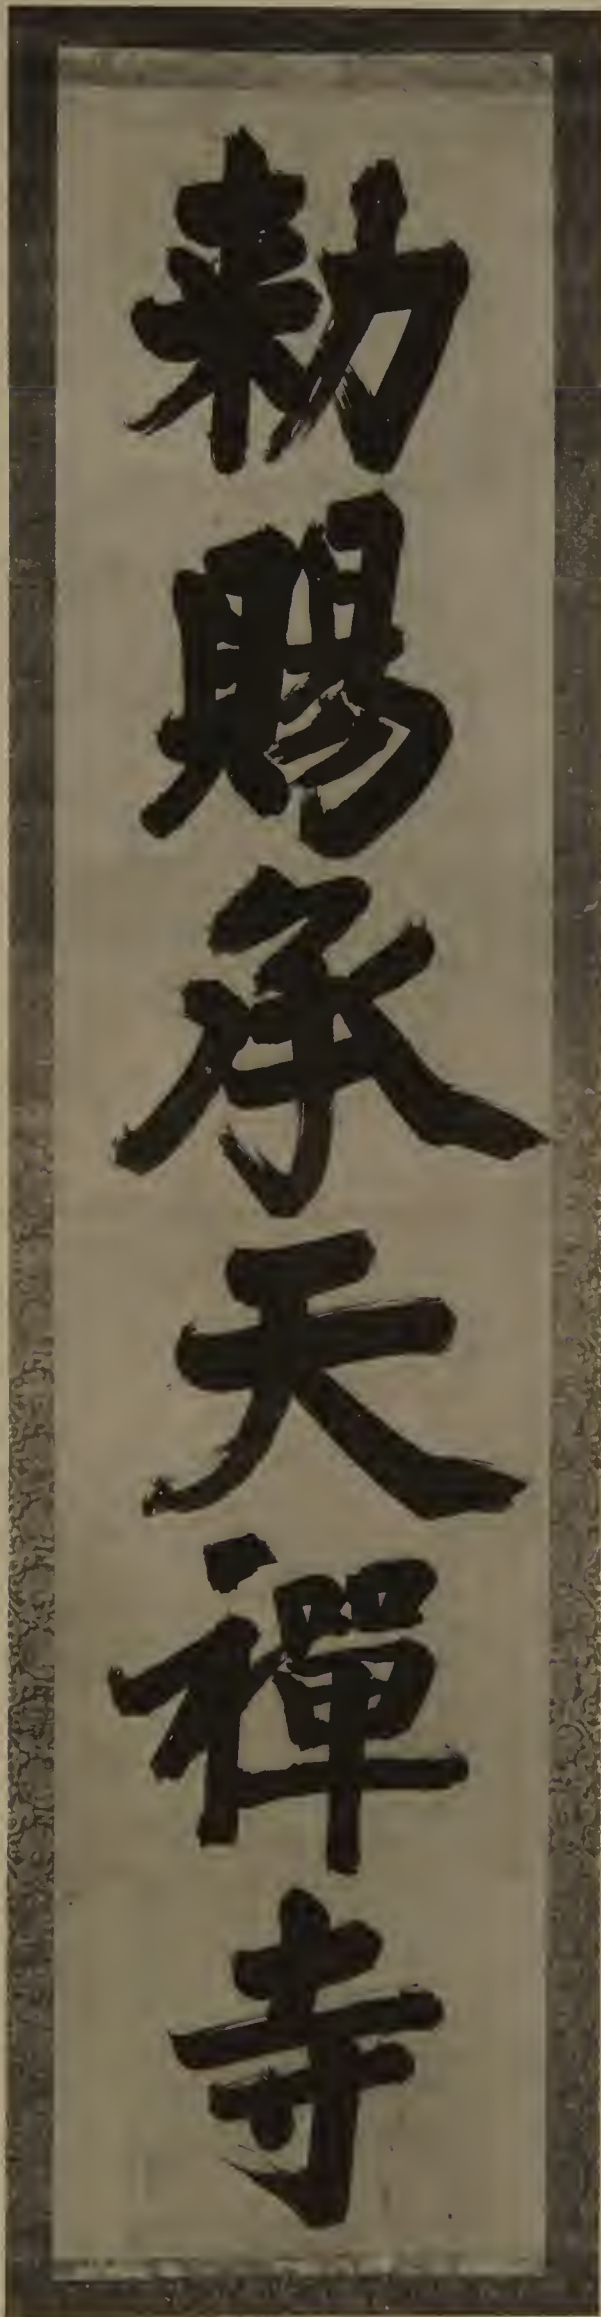 勅賜承天禪寺